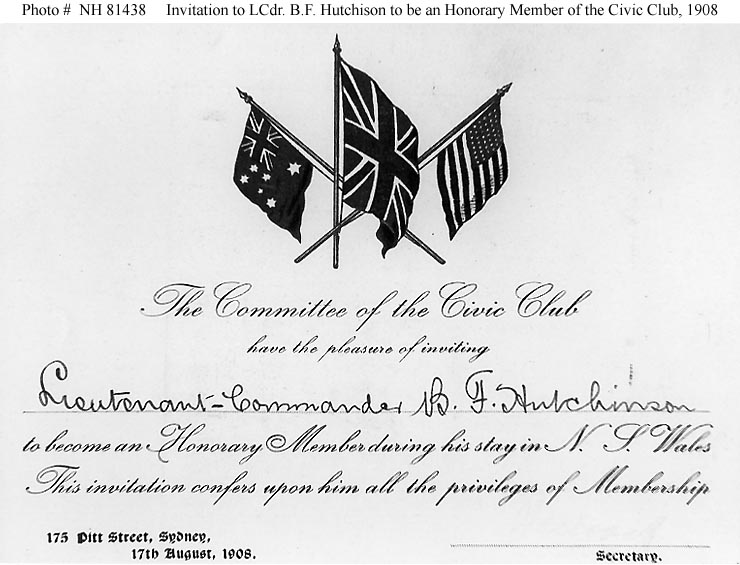 Photo # NH 81438 Invitation to LCdr. B.F. Hutchison to be an Honorary Member of the Civic Club, 1908
The Committee of the Civic Club
have the pleasure of inviting
Lieutenant-Commander B. F. Hutchinson
to become an Honorary Member during his stay in N. S. Wales
This invitation confers upon him all the privileges of Membership
175 Pitt Street, Sydney,
17th August, 1908.
Secretary.